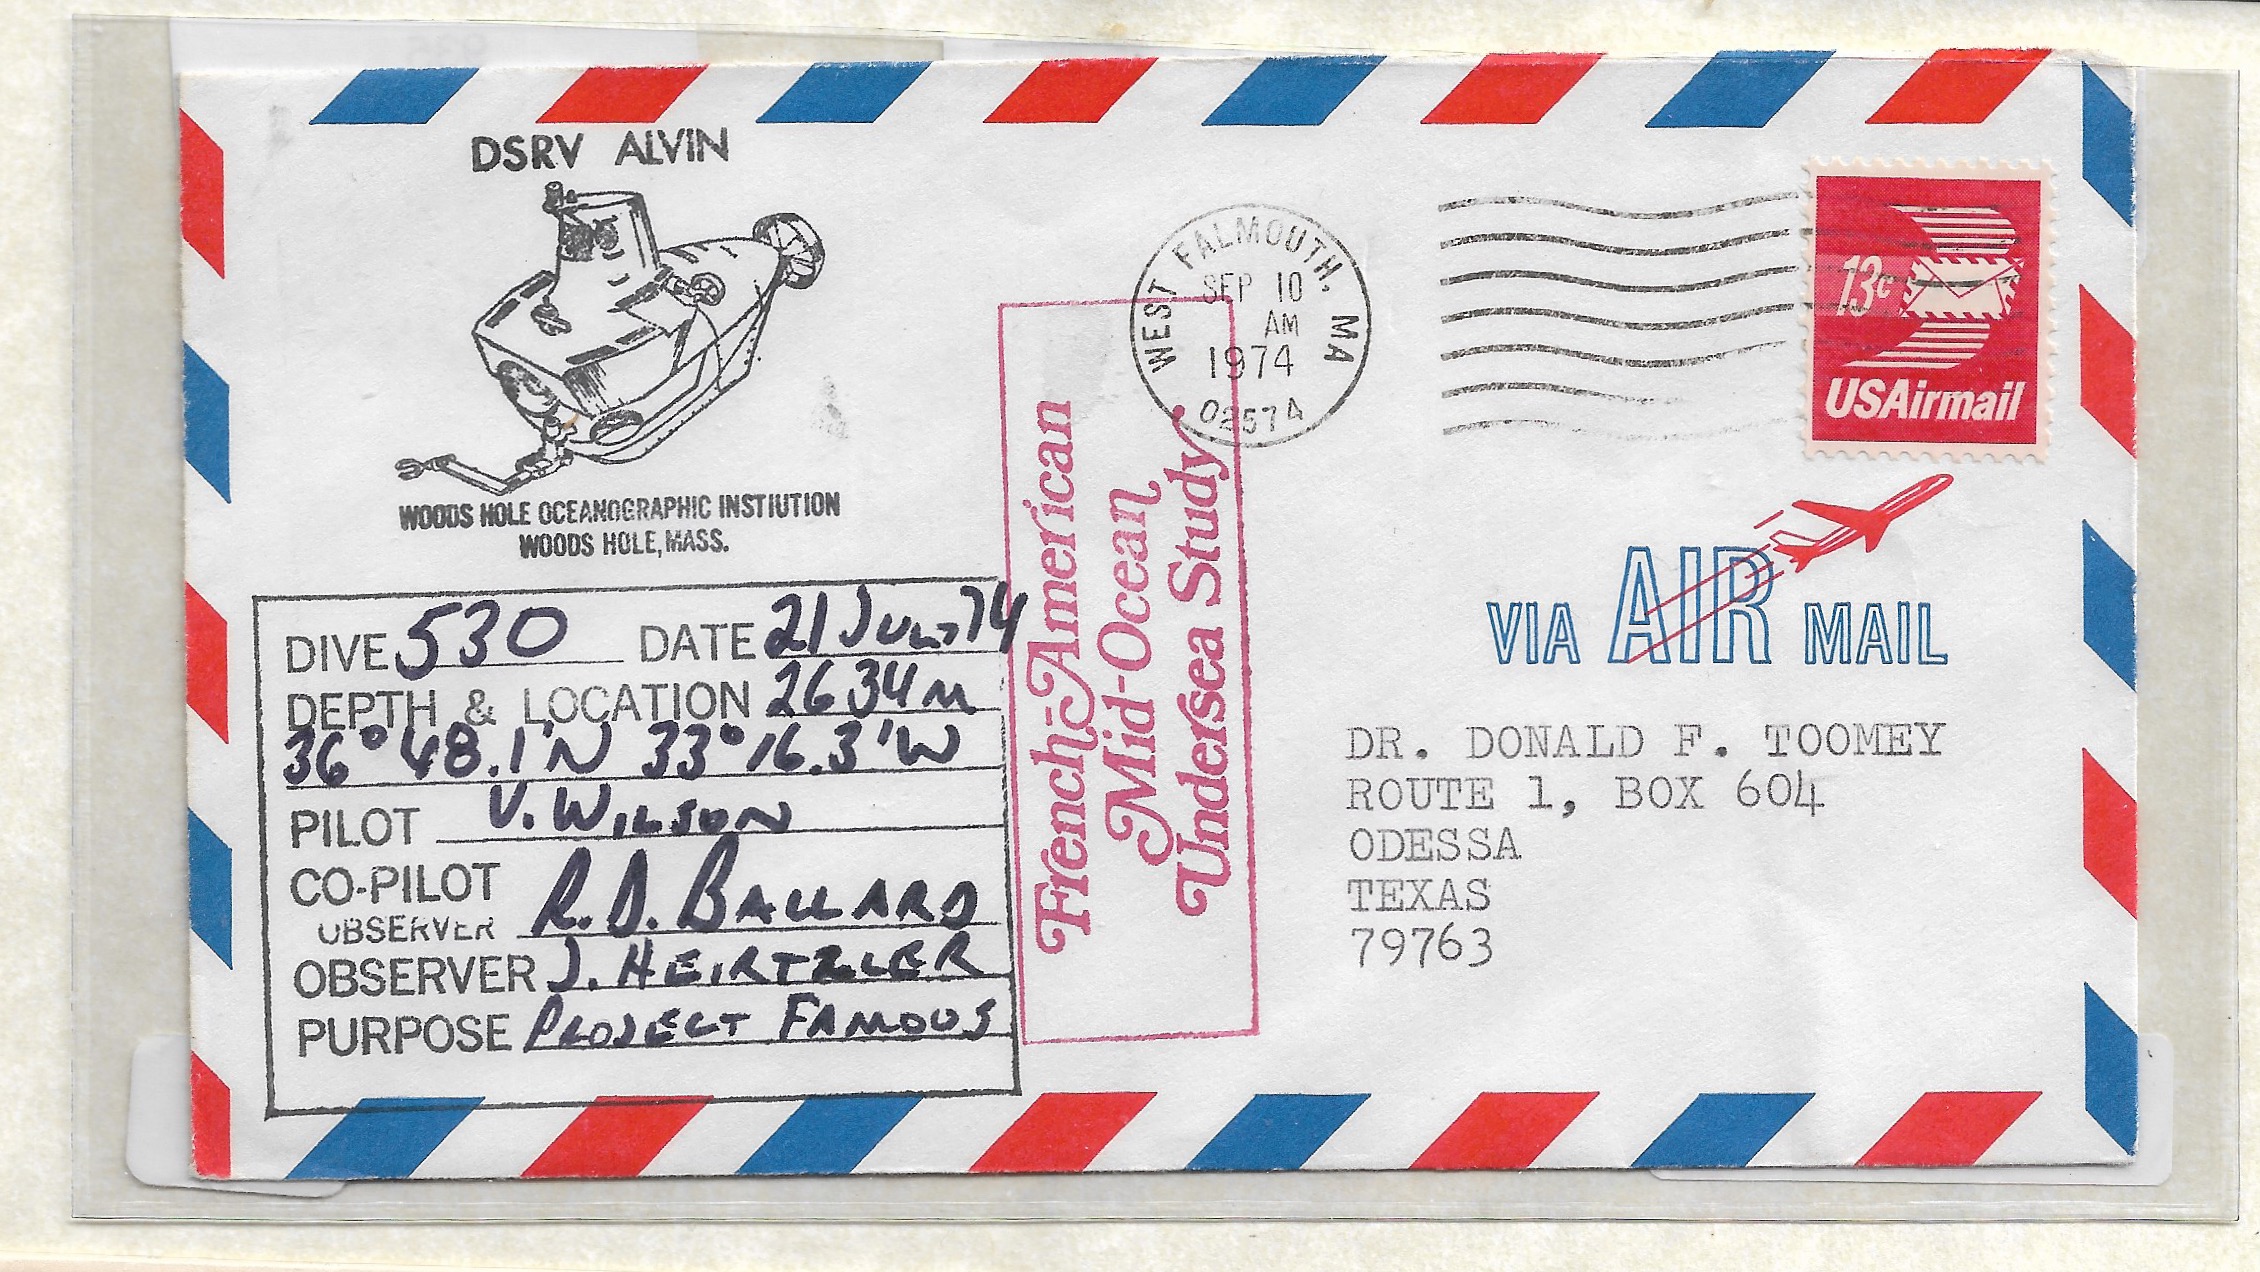 DSRV ALVIN
WOODS HOLE OCEANOGRAPHIC INSTIUTION
WOODS HOLE, MASS.
DIVE 530 DATE 21 JULY 74
DEPTH & LOCATION 2634 M
36° 48.1'N 33° 16.3'W
PILOT V. WILSON
CO-PILOT
OBSERVER R. D. BALLARD
OBSERVER J. HEIRTZLER
PURPOSE PROJECT FAMOUS
French-American
Mid-Ocean
Undersea Study
WEST FALMOUTH, MA
SEP 10
AM
1974
02574
13c
USAirmail
VIA AIR MAIL
DR. DONALD F. TOOMEY
ROUTE 1, BOX 604
ODESSA
TEXAS
79763